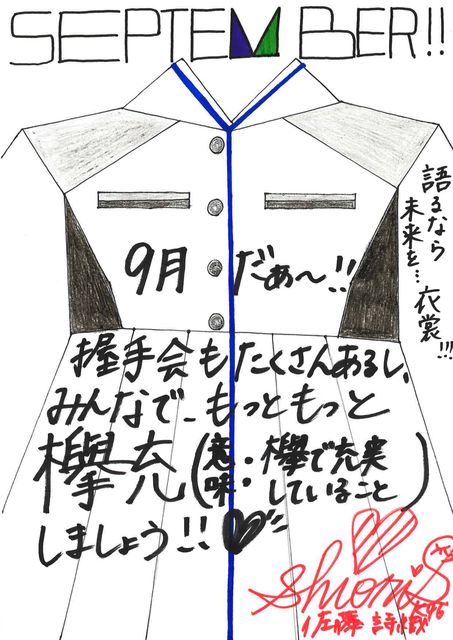 SEPTEMBER!!
語るなら
未来を…衣裳!!!
9月 だぁ～!!
握手会もたくさんあるし、
みんなで、もっともっと
欅充(意味・欅で充実していること)
しましょう!!
Shiori.S
佐藤 詩織